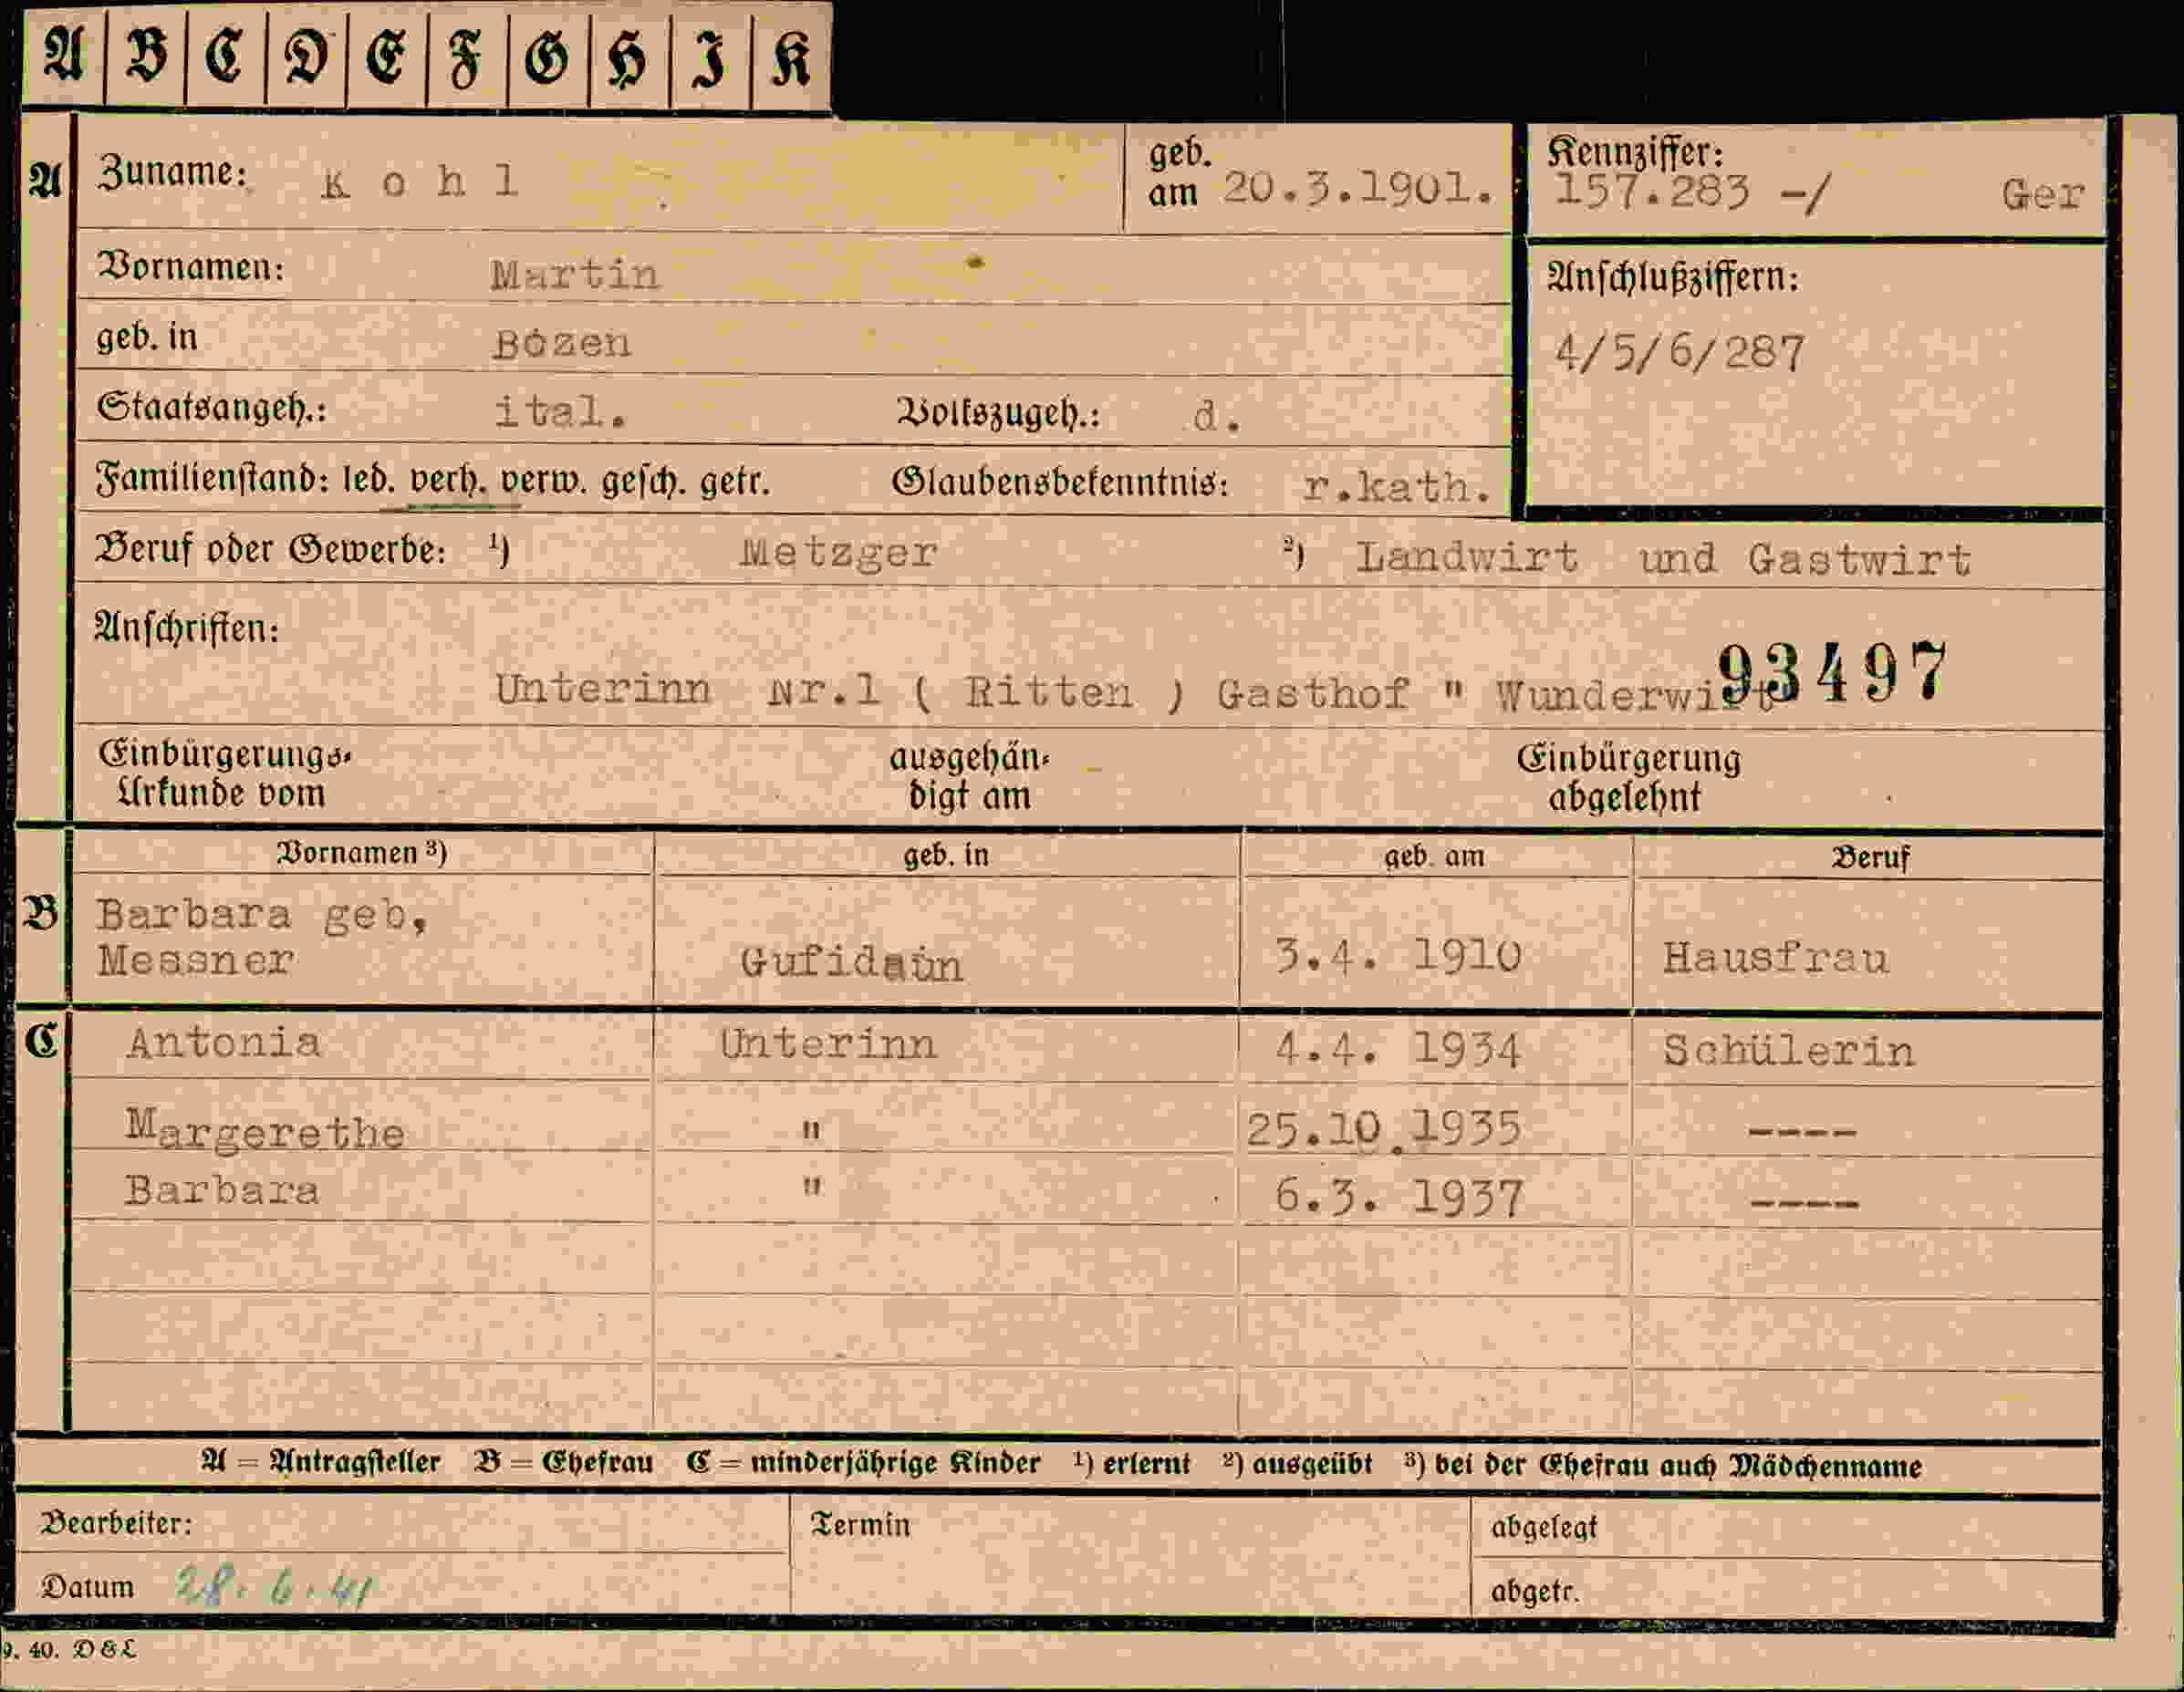 A B C D E F G H I K
A Zuname: Kohl geb. am 20.3.1901. Kennziffer: 157.283 -/ Ger
Vornamen: Martin
Anschlußziffern:
geb. in Bozen
4/5/6/287
Staatsangeh.: ital. Volkszugeh.: d.
Familienstand: led. verh. verw. gesch. getr. Glaubensbekenntnis: r.kath.
Beruf oder Gewerbe: ¹) Metzger ²) Landwirt und Gastwirt
Anschriften:
93497
Unterinn Nr.1 ( Ritten ) Gasthof " Wunderwirt
Einbürgerungs-
Urkunde vom
ausgehän-
digt am
Einbürgerung
abgelehnt
Vornamen ³) geb. in geb. am Beruf
B Barbara geb,
Messner Gufidaun 3.4. 1910 Hausfrau
C Antonia Unterinn 4.4. 1934 Schülerin
Margerethe " 25.10.1935 ----
Barbara " 6.3. 1937 ----
A = Antragsteller B = Ehefrau C = minderjährige Kinder ¹) erlernt ²) ausgeübt ³) bei der Ehefrau auch Mädchenname
Bearbeiter: Termin abgelegt
Datum 28.6.41 abgetr.
9. 40. D&L